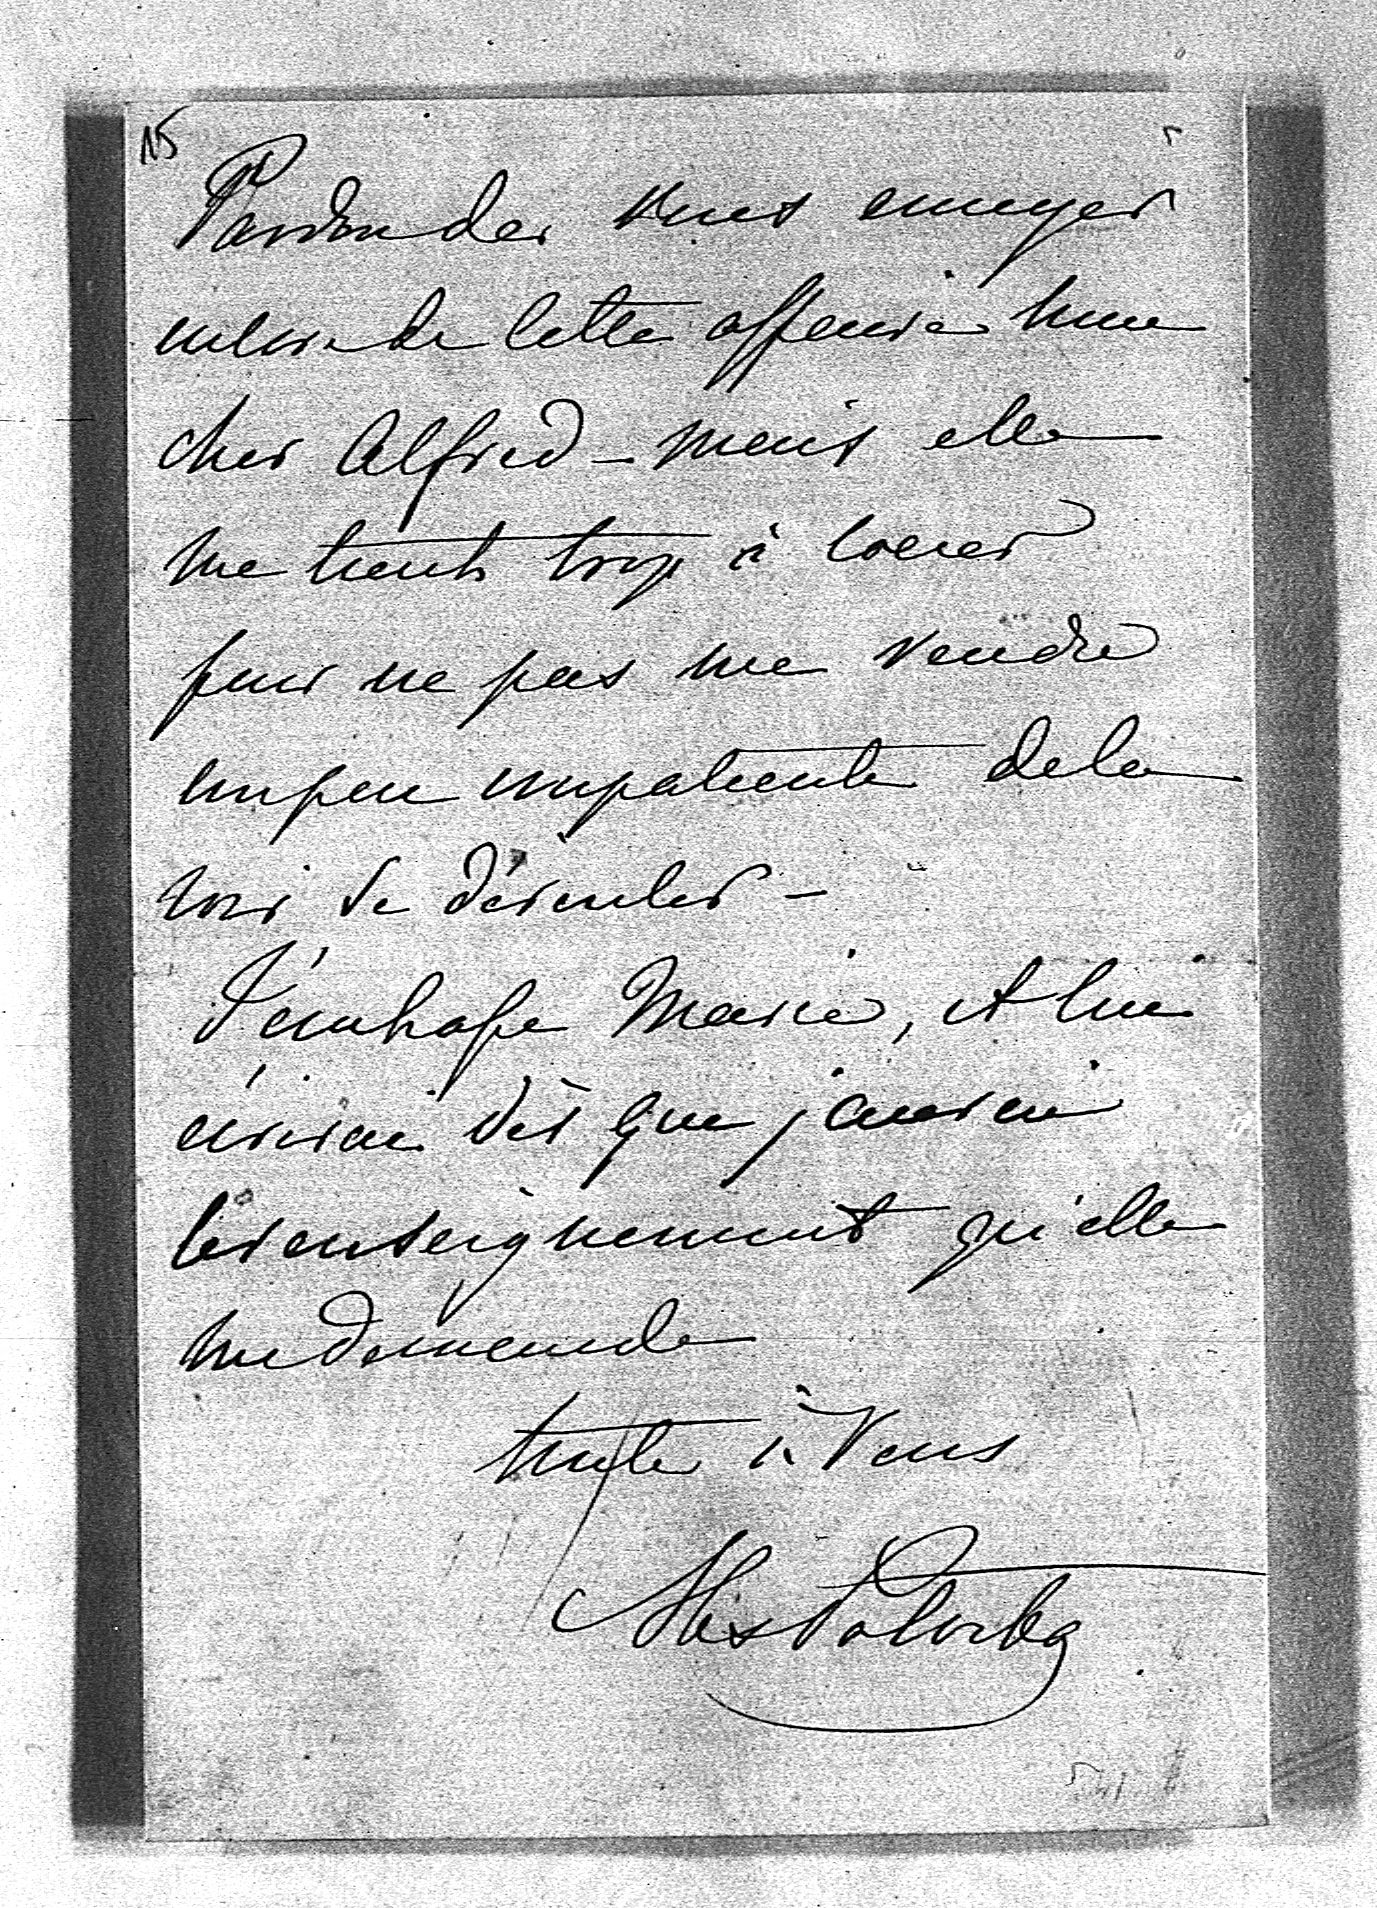 15
Pardon de vous ennuyer
encore de cette affaire mon
cher Alfred – mais elle
me tient trop à coeur
pour ne pas me rendre
un peu impatiente de la
voir se dérouler –
J'embrasse Marie, et lui
écrirai dès que j'aurai
les renseignements qu'elle
me demande
toute à vous